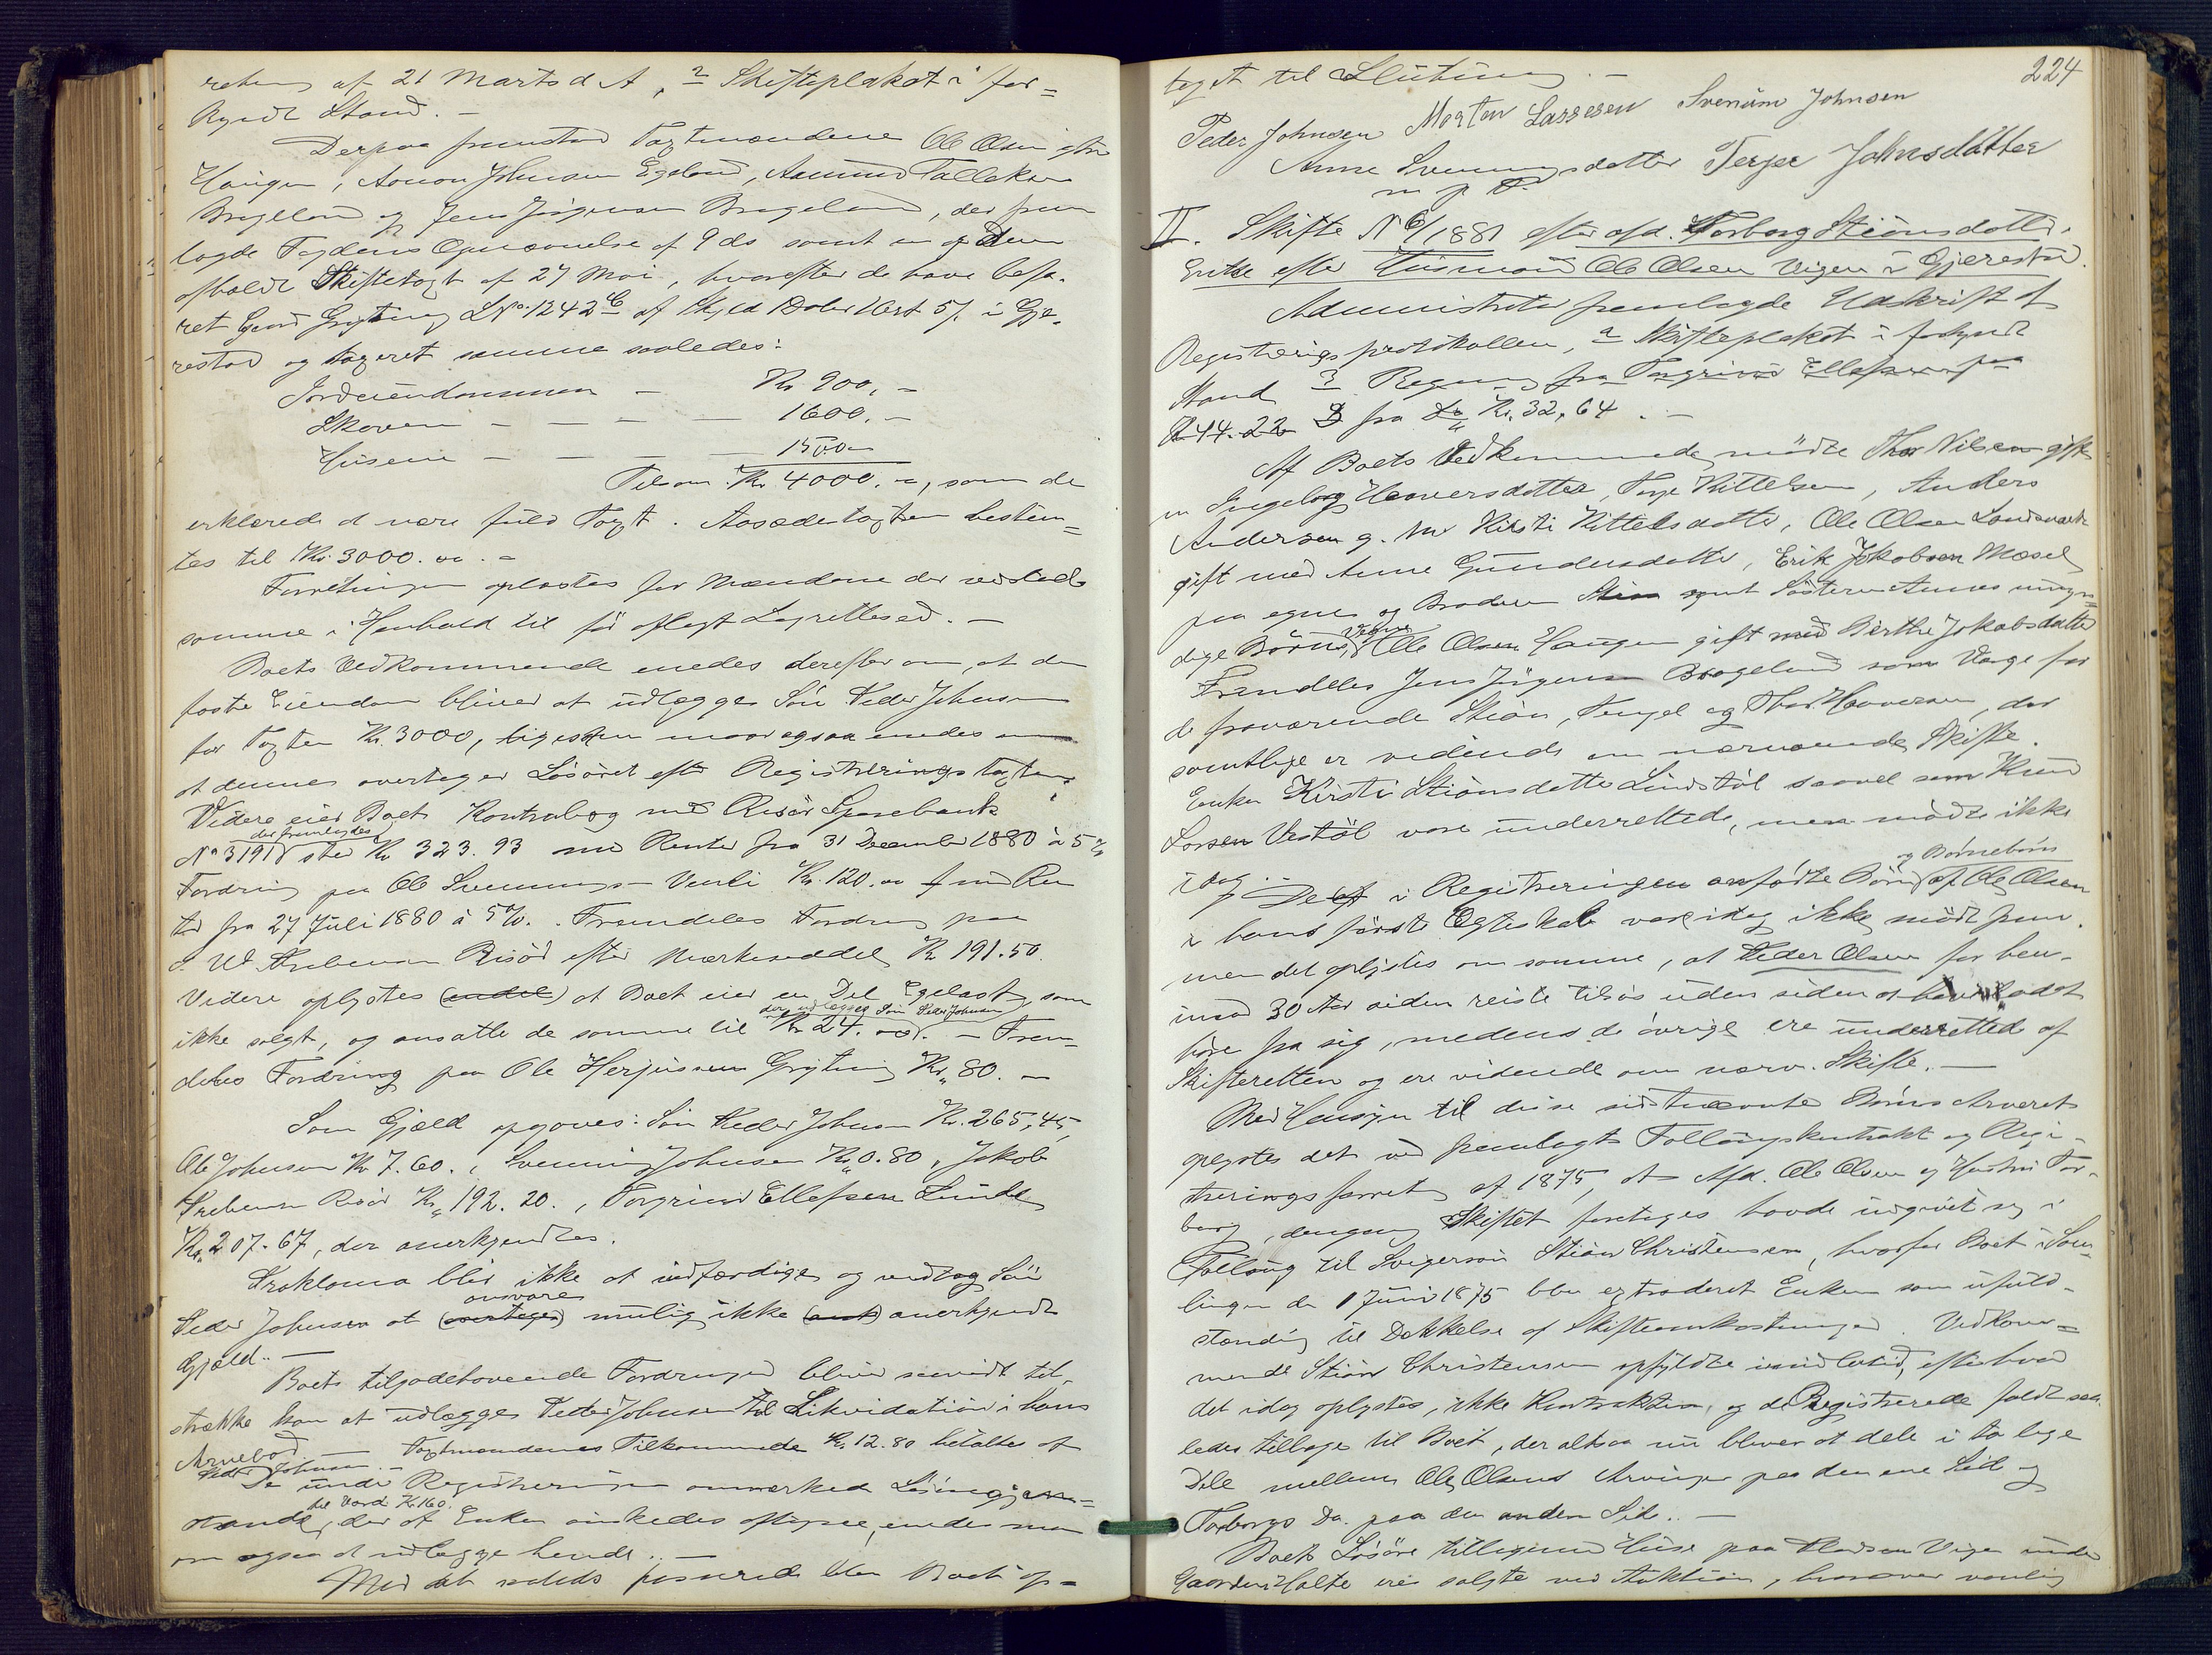 af 21 Marts d A, 2 Skifteplakat i for=
kyndt Stand. –
Derpaa fremstod Taxtmændene Ole Olsen
Haugen, Aanon Johnsen Egeland, Aamund Tallaksen
Brageland og Jens Jørgensen Brageland, der frem
lagde Fogdens Opnævnelse af 9 ds samt en af dem
afholdt Skiftetaxt af 27 Mai, hvorefter de have befa-
ret Gaard Gryting LNo. 1242 af Skyld 1 Daler 1 Ort 5 s. i Gje-
restad og taxeret samme saaledes:
Jordeiendommen – Kr 900. –
Skoven – – – – 1600. –
Husene – – – – 1500 –
Tilsam. Kr 4000. –, som de
erklærede at være fuld Taxt. Aasædestaxten bestem=
tes til Kr. 3000. 00. –
Forretningen oplæstes for Mændene der vedstod
samme i Henhold til før aflagt Lagrettesed. –
Boets Vedkommende enedes derefter om, at den
faste Eiendom bliver at udlægges Søn Peder Johnsen
for Taxten Kr. 3000, ligesom man ogsaa enedes om
at denne overtager Løsøret efter Registreringstaxten.
Videre eier Boet Kontrabog med Risør Sparebank
der fremlagdes
No 3191 stor Kr 323. 93 med Renter fra 31 December 1880 à 5 %
Fordring paa Ole Svennungs. Kr. 120. 00 med Ren
ter fra 27 Juli 1880 à 5 %. Fremdeles Fordring paa
Risør efter Mærkeseddel Kr 191.50.
Videre oplystes (endel) at Boet eier en Del Egelast, som
der udlægges Søn Peder Johnsen
ikke solgt, og ansatte de samme til Kr 24. 00. – Frem=
deles Fordring paa Ole Herjusen Gryting Kr. 80. –
Som Gjæld opgaves: Søn Peder Johnsen Kr. 265,45,
Ole Johnsen Kr 7.60., Svenning Johnsen Kr 0.80, Jakob
Risør Kr. 192. 20., Torgrim Ellefsen Lunde
Kr. 207.67, der anerkjendtes.
Proklama blir ikke at udfærdige og vedtog Søn
ansvare
Peder Johnsen at (overtage) mulig ikke anerkjendt
Gjæld. –
Boets tilgodehavende Fordringer bliver saavidt til-
strække kan at udlægges Peder Johnsen til Likvidation i hans
Arvelod. – Taxtmændenes Tilkommende Kr. 12.80 betaltes af
Peder Johnsen. –
De under Registreringen anmærkede Løsøregjen=
til Værdi Kr 160.
stande, der af Enken ønskedes, enedes man
om ogsaa at udlægge hende. –
Med det saaledes passerede blev Boet op=
224
taget til Slutning. –
Peder Johnsen Morten Lassesen Svenum Johnsen
Anne Svenningsdatter Terjer Johnsdatter
m p P.
II. Skifte No 6/1881 efter afd. Torborg Stiansdatter,
Enke efter Husmand Ole Olsen Vigen i Gjerestad.
Administrator fremlagde Udskrift af
Registreringsprotokollen, 2 Skifteplakat i forkyndt
Stand 3 Regning fra Torgrim Ellefsen paa
Kr 44.22 3 fra do Kr. 32,64. –
Af Boets Vedkommende mødte Thor Nilsen gift
m Ingeborg Haaversdatter, Terje Kittelsen, Anders
Andersen g. m Kirsti Kittelsdatter, Ole Olsen
gift med Anne Gundersdatter, Erik Jakobsen Mæsel
paa egne og Broderen Stian samt Søsteren Annes umyn=
Vegne
dige Børns, Ole Olsen Haugen gift med Berthe Jakobsdatter
Fremdeles Jens Jørgensen Brageland som Værge for
de fraværende Stian, Tengel og Thor Haaversen, der
samtlige er vidende om nærværende Skifte.
Enken Kirsti Stiansdatter Lindstøl saavel som Knud
Larsen Vestøl vare underrettede, men mødte ikke
idag. –
og Børnebørn
De i Registreringen anførte Børn af Ole Olsen
i hans første Ægteskab vare idag ikke mødt frem,
men det oplystes om samme, at Peder Olsen for hen-
imod 30 Aar siden reiste tilsøs uden siden at have ladet
høre fra sig, medens de øvrige ere underrettede af
Skifteretten og ere vidende om nærv. Skifte. –
Med Hensyn til disse sidstnævnte Børns Arveret
oplystes det ved fremlagt Follaugskontrakt og Regi-
streringsforretn af 1875, at Afd. Ole Olsen og Hustru Tor-
borg, dengang Skiftet foretoges havde indgivet sig i
Follaug til Svigersøn Stian Christensen, hvorfor Boet i Sam-
lingen den 1 Juni 1875 blev extraderet Enken som ufuld-
stændig til Dækkelse af Skifteomkostninger. Vedkom=
mende Stian Christensen opfyldte imidlertid, efter hvad
det idag oplystes, ikke Kontrakten, og de Registrerede faldt saa-
ledes tilbage til Boet, der altsaa nu bliver at dele i to lige
Dele mellem Ole Olsens Arvinger paa den ene Side og
Torborgs Do. paa den anden Side. –
Boets Løsøre tilligemed Huse paa Pladsen Vigen under
Gaarden Holte ere solgte ved Auktion, hvorover vanlig